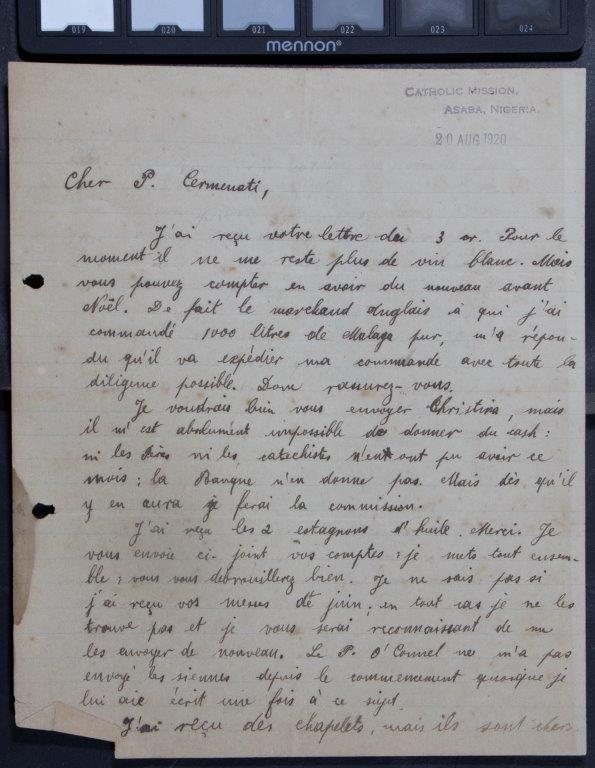 019 020 021 022 023 024
mennon®
CATHOLIC MISSION,
ASABA, NIGERIA.
20 AUG 1920
Cher P. Cermenati,
J'ai reçu votre lettre du 3 cr. Pour le
moment il ne me reste plus de vin blanc. Mais
vous pouvez compter en avoir du nouveau avant
Noël. De fait le marchand anglais à qui j'ai
commandé 1000 litres de Malaga pur, m'a répon-
du qu'il va expédier ma commande avec toute la
diligence possible. Donc rassurez-vous.
Je voudrais bien vous envoyer Christina, mais
il m'est absolument impossible de donner du cash:
ni les Pères ni les catechistes n'en ont pu avoir ce
mois; la Banque n'en donne pas. Mais dès qu'il
y en aura je ferai la commission.
J'ai reçu les 2 estagnons d'huile. Merci. Je
vous envoie ci-joint vos comptes: je mets tout ensem-
ble; vous vous débrouillerez bien. Je ne sais pas si
j'ai reçu vos messes de juin; en tout cas je ne les
trouve pas et je vous serai reconnaissant de me
les envoyer de nouveau. Le P. O'Connel ne m'a pas
envoyé les siennes depuis le commencement quoique je
lui aie écrit une fois à ce sujet.
J'ai reçu des chapelets, mais ils sont chers